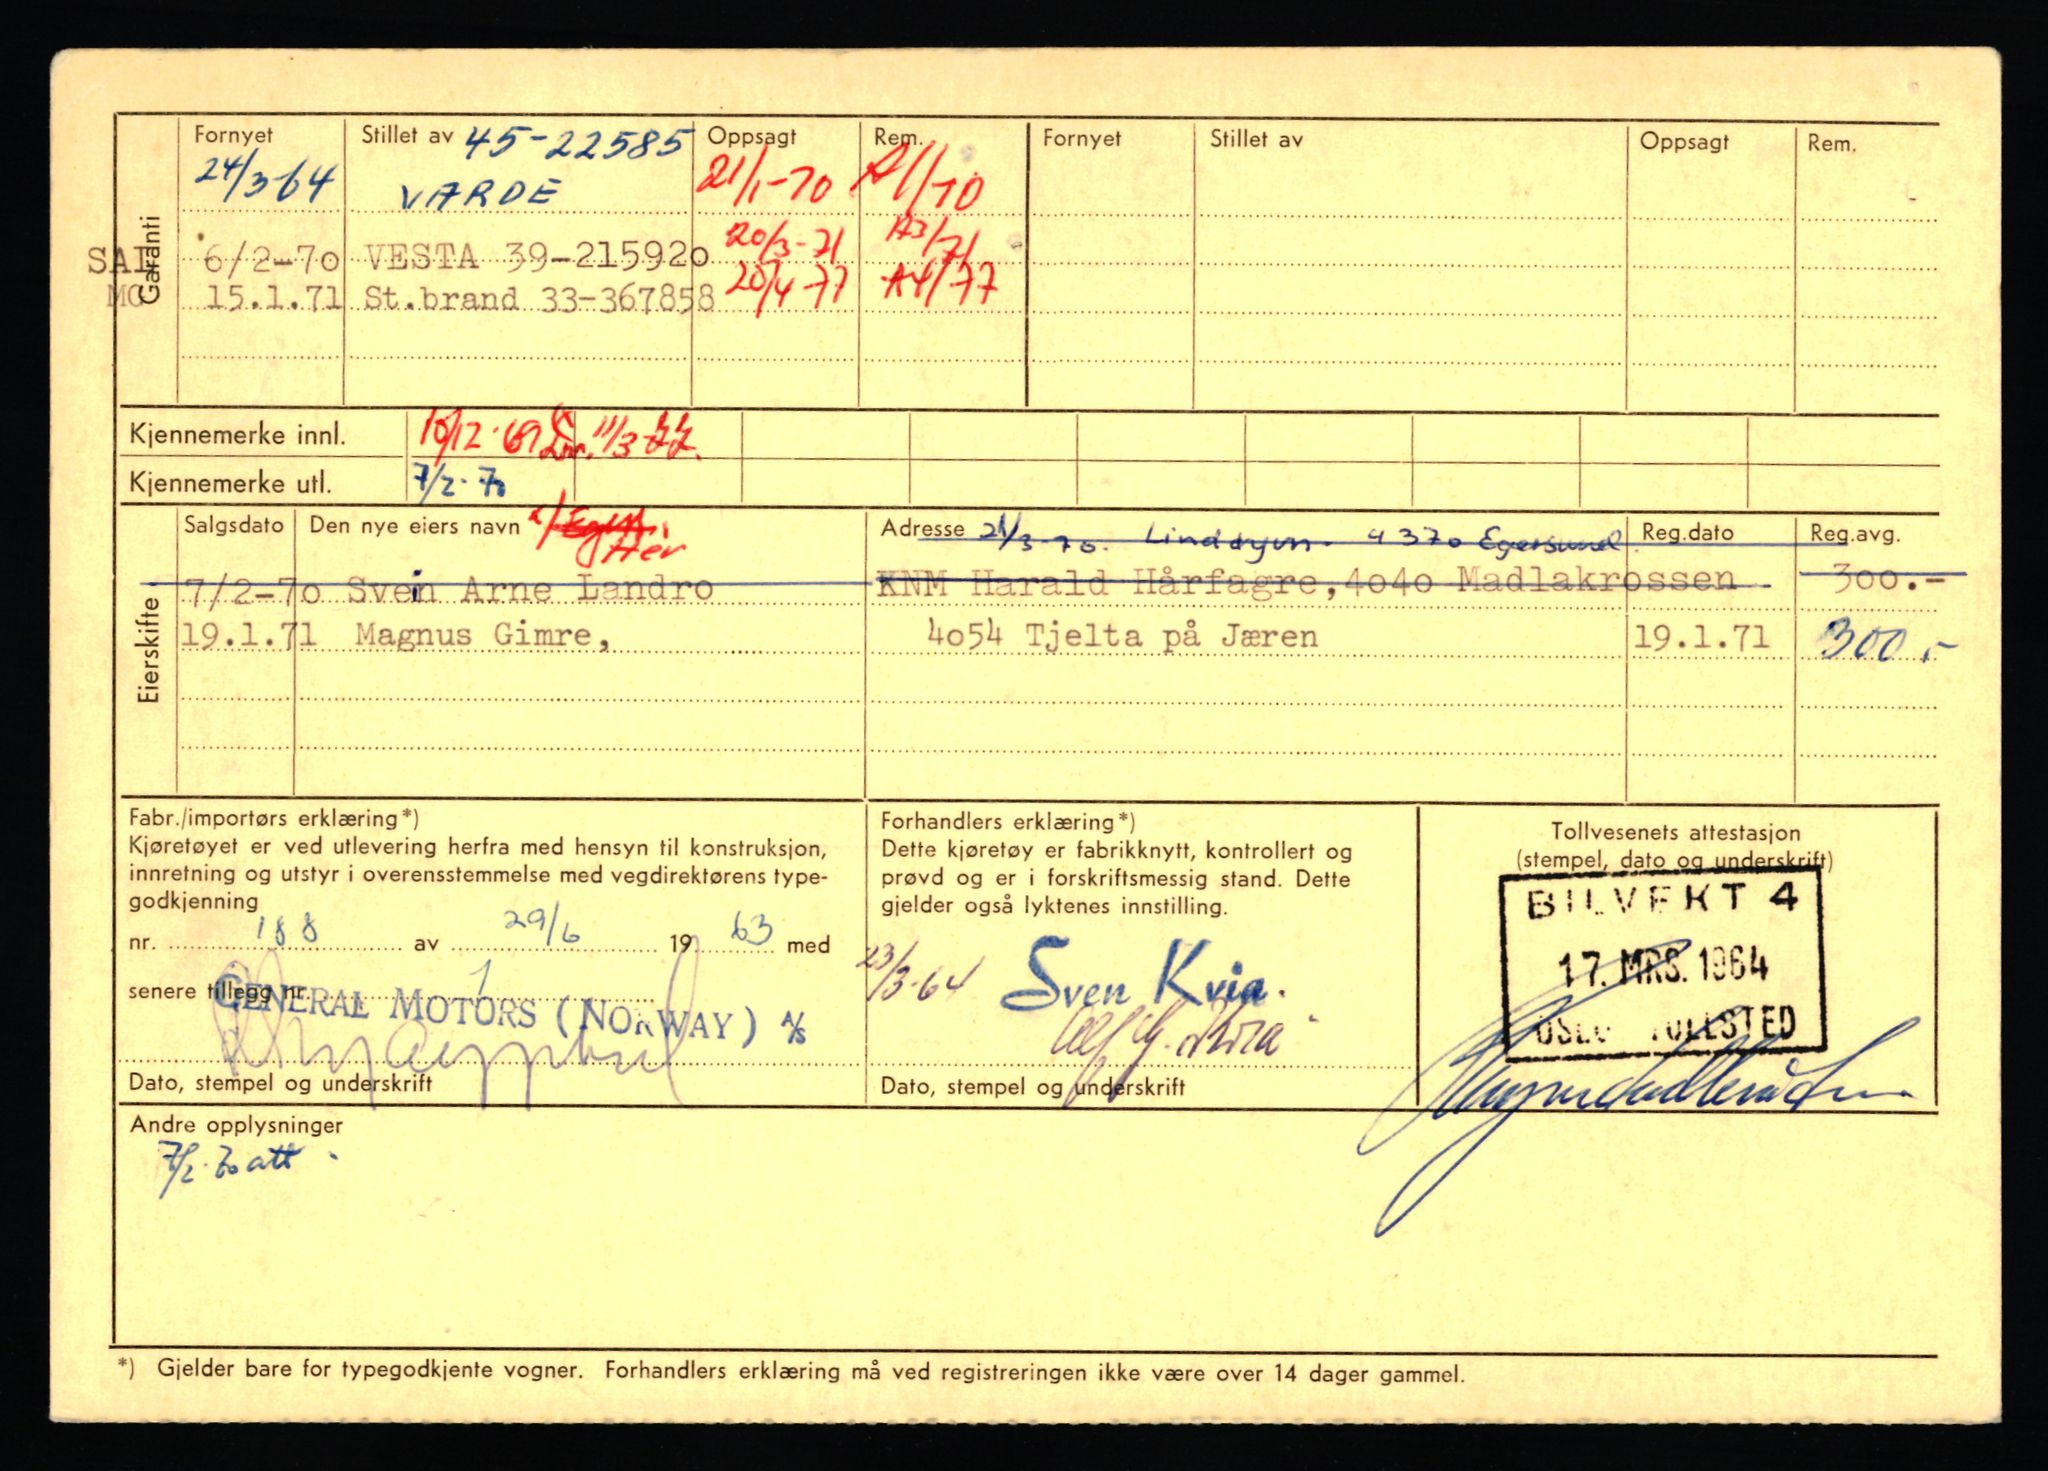 Garanti
Fornyet Stillet av 45-22585 Oppsagt Rem. Fornyet Stillet av Oppsagt Rem.
24/3-64 VARDE 21/1-70 A1/70
SAL 6/2-70 VESTA 39-215920 20/3-71 A3/71
MG 15.1.71 St.brand 33-367858 20/4-77 A4/77
Kjennemerke innl. 10/12-69 11/3-77.
Kjennemerke utl. 7/2-70
Eierskifte
Salgsdato Den nye eiers navn Her Adresse 21/3-70. 4370 Egersund Reg.dato Reg.avg.
7/2-70 Svein Arne Landro KNM Harald Hårfagre, 4040 Madlakrossen 300.-
19.1.71 Magnus Gimre, 4054 Tjelta på Jæren 19.1.71 300,-
Fabr./importørs erklæring*)
Kjøretøyet er ved utlevering herfra med hensyn til konstruksjon,
innretning og utstyr i overensstemmelse med vegdirektørens type-
godkjenning
nr. 188 av 29/6 1963 med
senere tillegg nr. 1
GENERAL MOTORS (NORWAY) A/S
Dato, stempel og underskrift
Forhandlers erklæring*)
Dette kjøretøy er fabrikknytt, kontrollert og
prøvd og er i forskriftsmessig stand. Dette
gjelder også lyktenes innstilling.
23/3-64 Sven Kvia.
Dato, stempel og underskrift
Tollvesenets attestasjon
(stempel, dato og underskrift)
BILVEKT 4
17. MRS. 1964
OSLO TOLLSTED
Andre opplysninger
7/2-70 att.
*) Gjelder bare for typegodkjente vogner. Forhandlers erklæring må ved registreringen ikke være over 14 dager gammel.